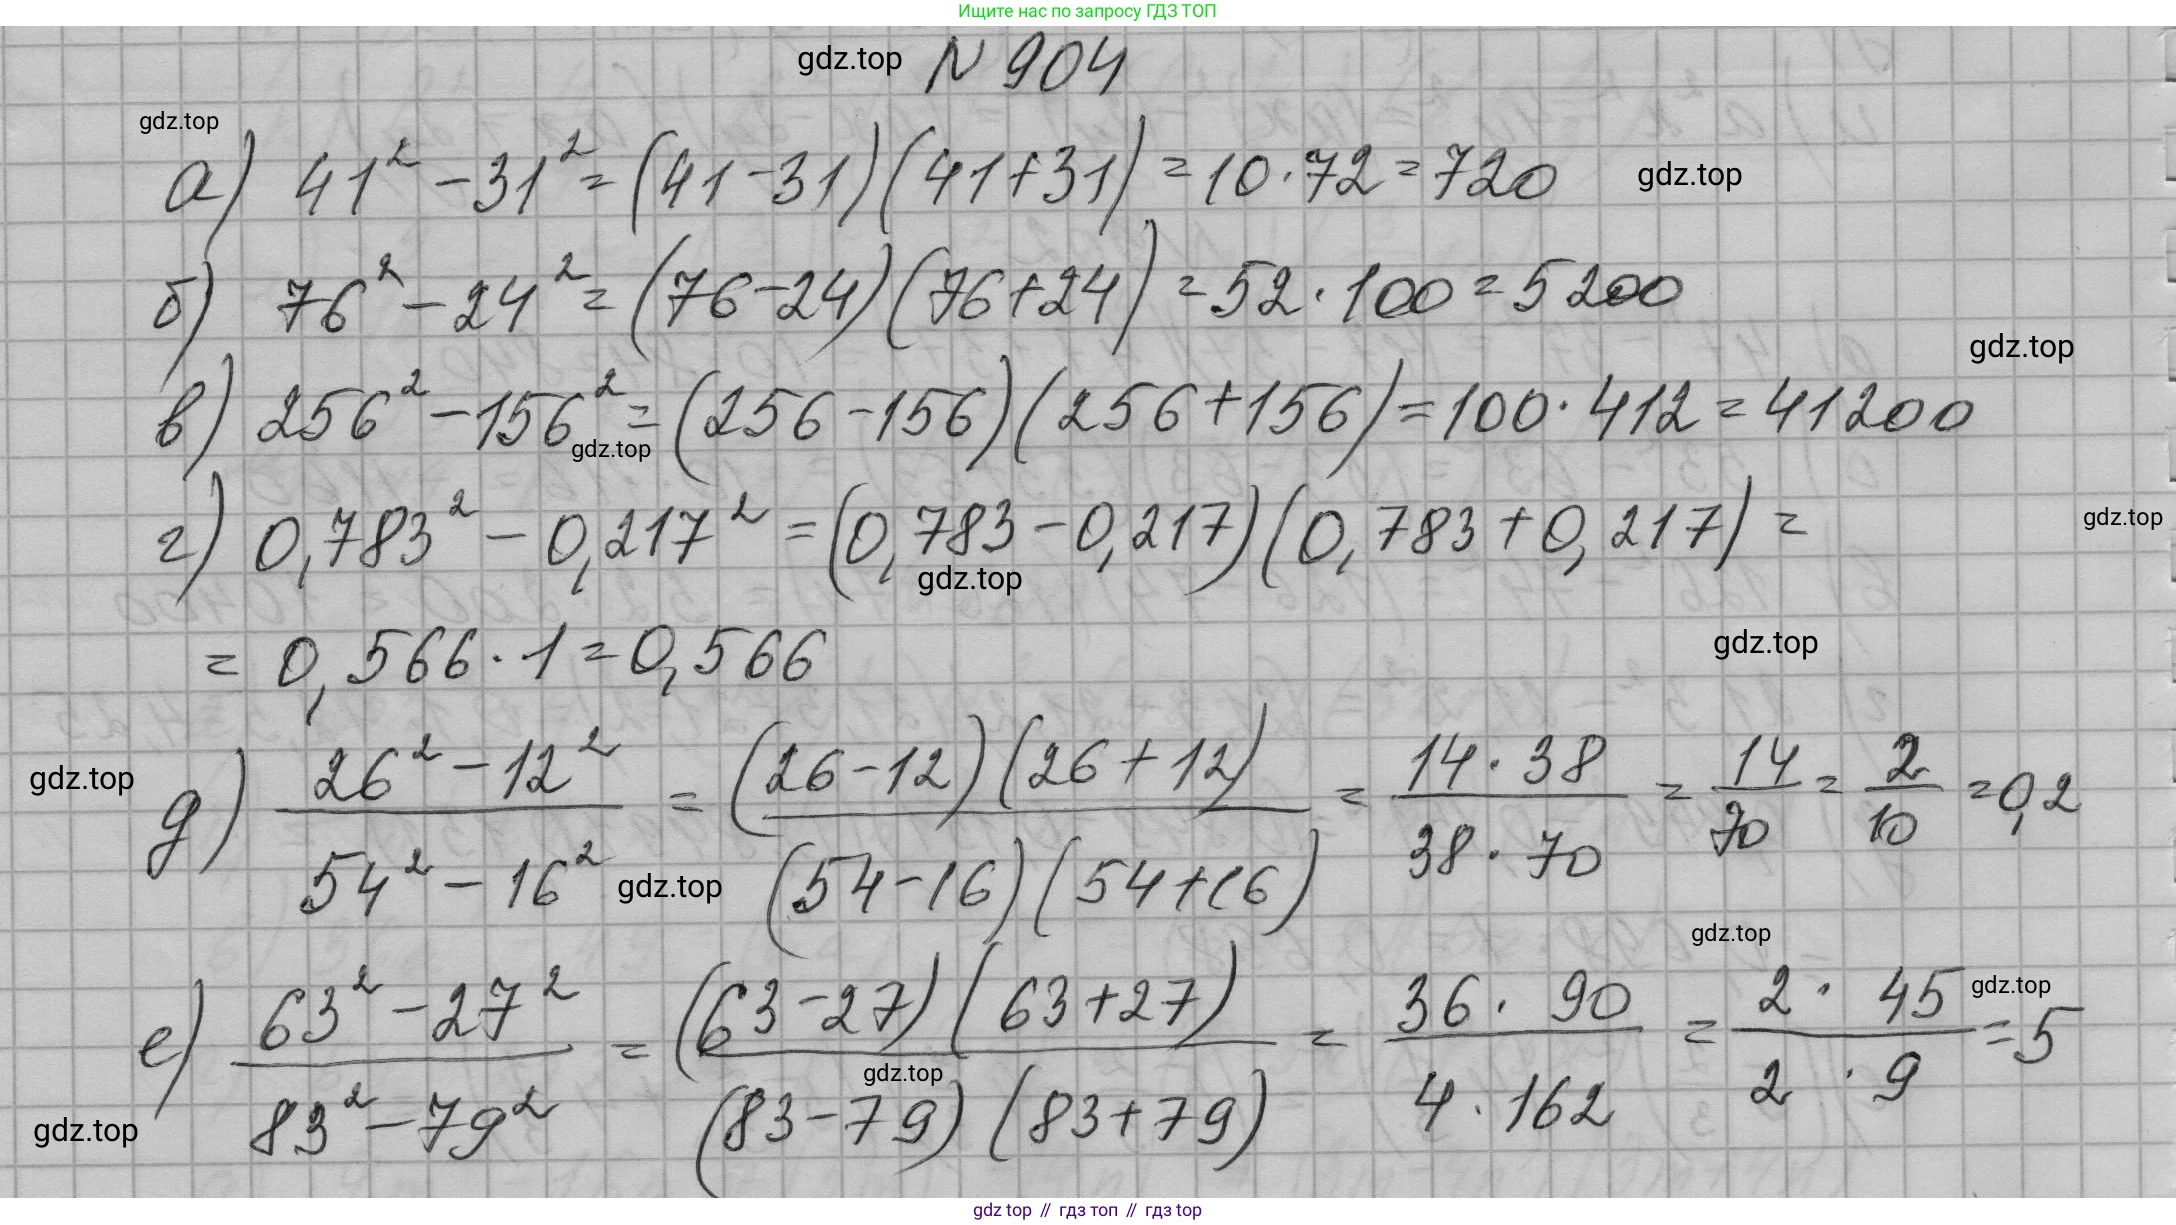 Ищите нас по запросу ГДЗ ТОП
gdz.top № 904
gdz.top
а) 41² - 31² = (41-31)(41+31) = 10·72 = 720 gdz.top
б) 76² - 24² = (76-24)(76+24) = 52·100 = 5200
gdz.top
в) 256² - 156² = (256-156)(256+156) = 100·412 = 41200
gdz.top
г) 0,783² - 0,217² = (0,783-0,217)(0,783+0,217) =
gdz.top
gdz.top
= 0,566·1 = 0,566
gdz.top
gdz.top
д) (26² - 12²)/(54² - 16²) = ((26-12)(26+12))/((54-16)(54+16)) = (14·38)/(38·70) = 14/70 = 2/10 = 0,2
gdz.top
gdz.top
gdz.top
е) (63² - 27²)/(83² - 79²) = ((63-27)(63+27))/((83-79)(83+79)) = (36·90)/(4·162) = (2·45)/(2·9) = 5
gdz.top
gdz.top
gdz top // гдз топ // гдз top